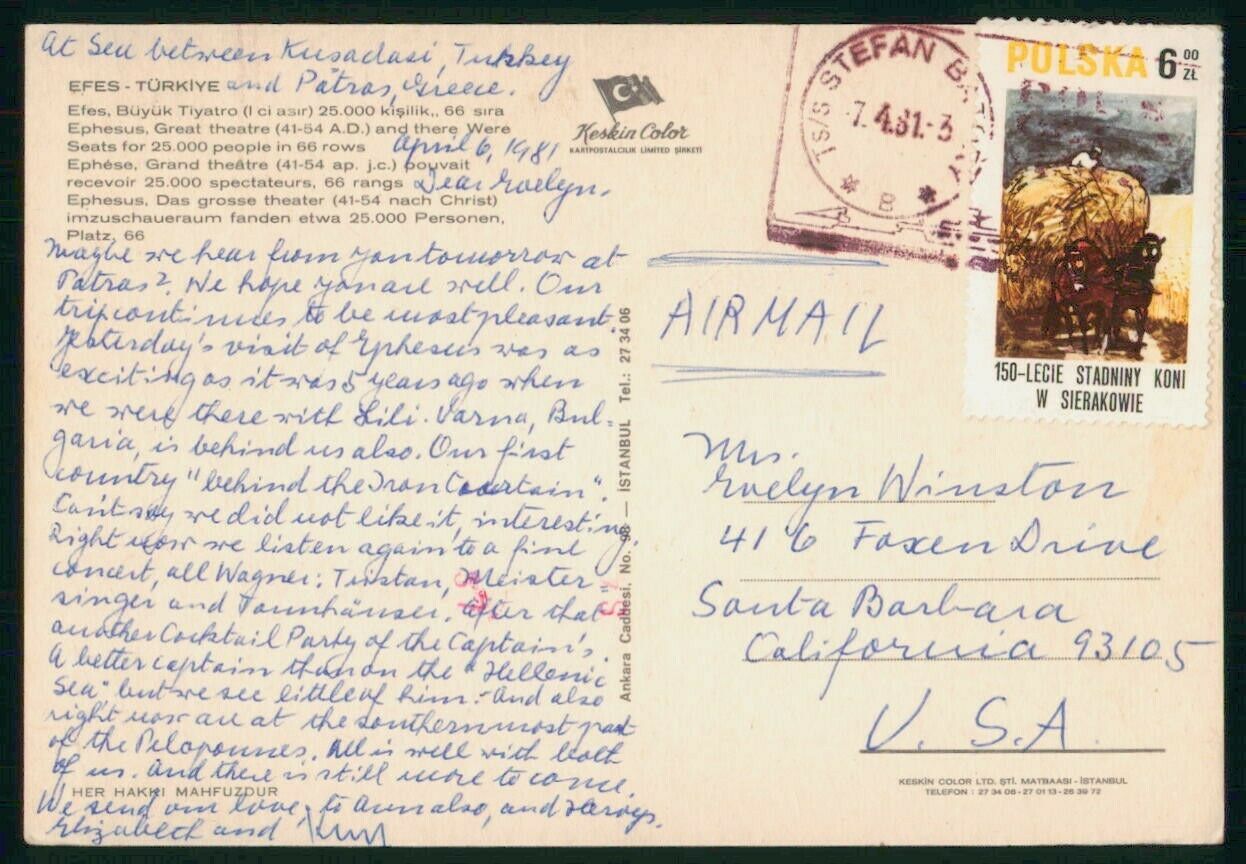 At Sea between Kusadasi, Turkey
and Patras, Greece.
EFES - TÜRKİYE
Efes, Büyük Tiyatro (I ci asır) 25.000 kişilik,, 66 sıra
Ephesus, Great theatre (41-54 A.D.) and there Were
Seats for 25.000 people in 66 rows
Ephése, Grand theâtre (41-54 ap. j.c.) pouvait
recevoir 25.000 spectateurs, 66 rangs
Ephesus, Das grosse theater (41-54 nach Christ)
imzuschaueraum fanden etwa 25.000 Personen,
Platz, 66
Keskin Color
KARTPOSTALCILIK LIMITED ŞİRKETİ
April 6, 1981
Dear Evelyn.
Maybe we hear from you tomorrow at
Patras? We hope you are well. Our
trip continues to be most pleasant.
Yesterday's visit of Ephesus was as
exciting as it was 5 years ago when
we were there with Lili. Varna, Bul=
garia, is behind us also. Our first
country "behind the Iron Courtain".
Can't say we did not like it, interesting.
Right now we listen again to a fine
concert, all Wagner: Tristan, Meister=
singer and Tannhäuser. After that
another Cocktail Party of the Captain's.
A better captain than on the "Hellenic
Sea" but we see little of him.- And also
right now are at the southernmost part
of the Peloponnes. All is well with both
of us. And there is still more to come.
HER HAKKI MAHFUZDUR
We send our love, to Ann also, and Herveys.
Elizabeth and
Ankara Caddesi, No. 98 — İSTANBUL Tel.: 27 34 06
TS/S STEFAN BATORY
7. 4.81.-3
B
POLSKA 6 00 ZŁ
150-LECIE STADNINY KONI
W SIERAKOWIE
AIRMAIL
Mrs.
Evelyn Winston
416 Foxen Drive
Santa Barbara
California 93105
U.S.A.
KESKİN COLOR LTD. ŞTİ. MATBAASI - İSTANBUL
TELEFON : 27 34 06 - 27 01 13 - 26 39 72